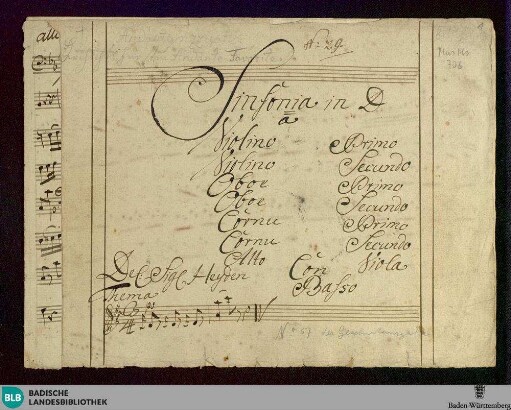 allo
No 29.
Mus Hs
Sinfonia in D
a
Violino Primo
Violino Secundo
Oboe Primo
Oboe Secundo
Cornu Primo
Cornu Secundo
Alto Viola
Con
Basso
Del Sigl Heyden
Thema
BLB BADISCHE
LANDESBIBLIOTHEK
Baden-Württemberg